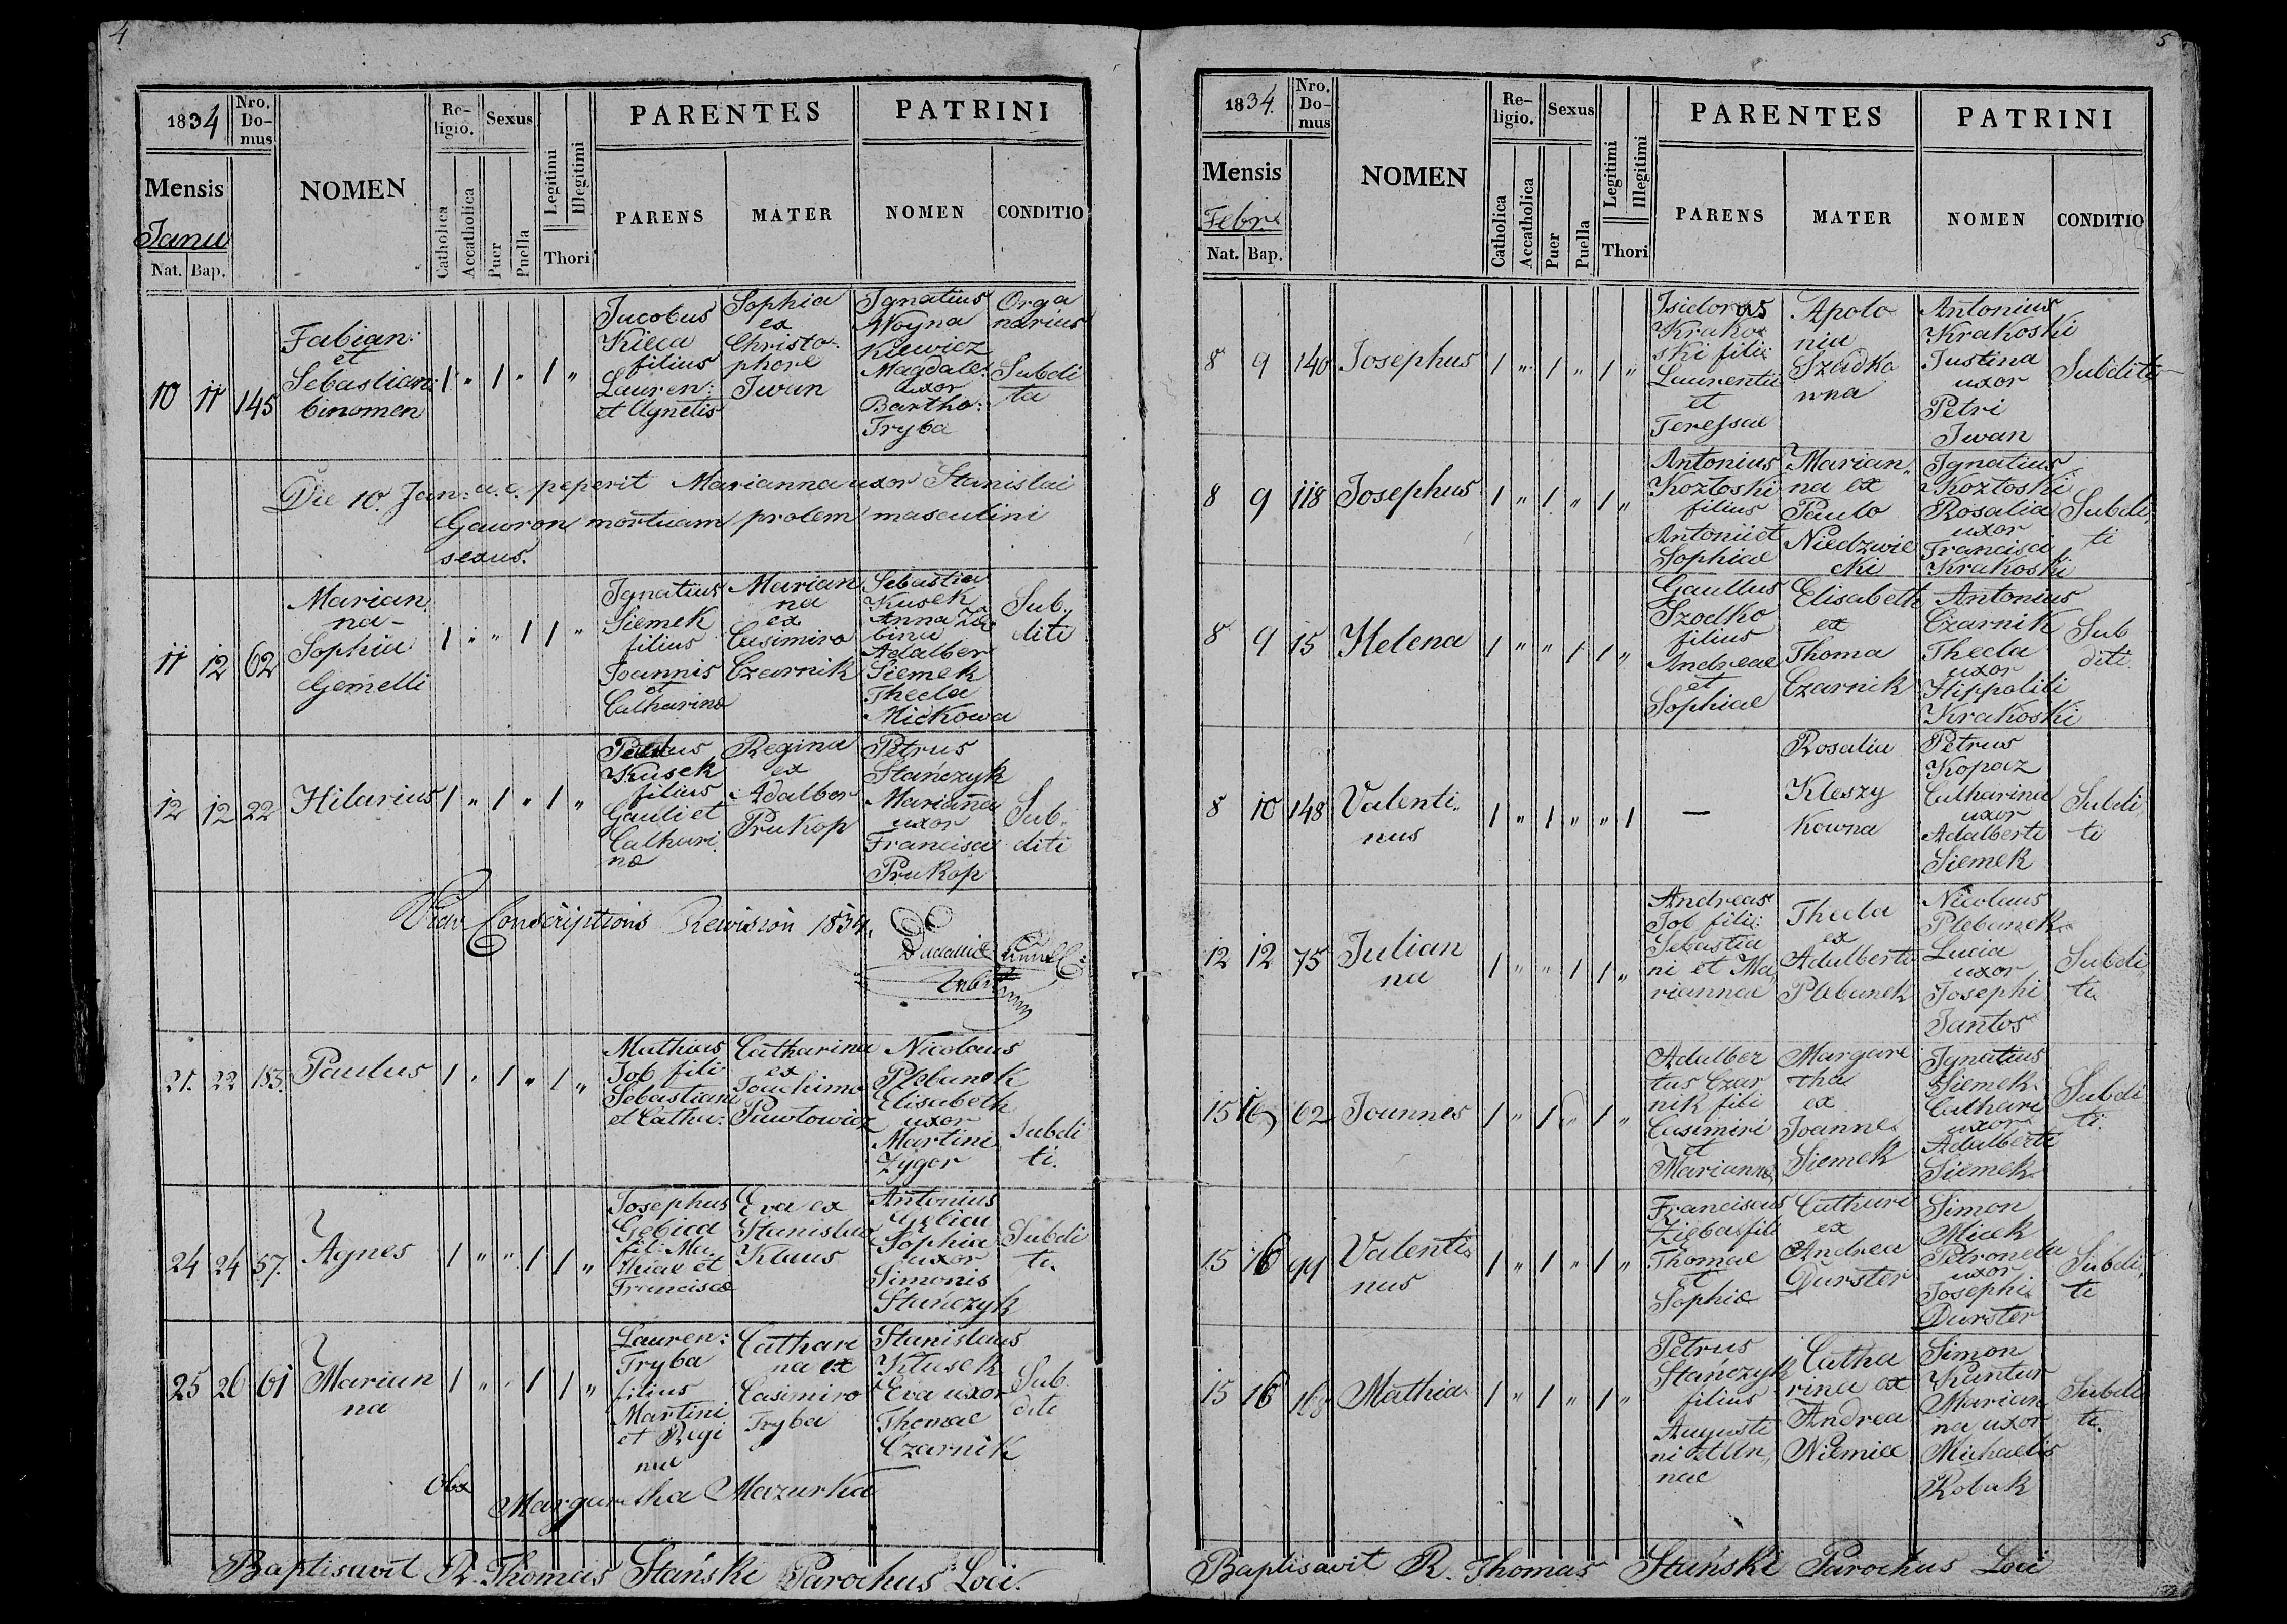 4
1834
Nro. Do- mus
NOMEN
Re- ligio.
Sexus
Legitimi
Illegitimi
PARENTES
PATRINI
Mensis
Janu
Catholica
Accatholica
Puer
Puella
Thori
PARENS
MATER
NOMEN
CONDITIO
Nat.
Bap.
10 11 145
Fabian:
et
Sebastian:
binomen
1 " 1 " 1 "
Jacobus
Kieca
filius
Lauren:
et Agnetis
Sophia
ex
Christo-
phore
Iwan
Ignatius
Woyna
Kiewicz
Magdale:
uxor
Bartho:
Tryba
Orga
narius
Subdi
ta
Die 10. Jan: a. c. peperit Marianna uxor Stanislai
Gawron mortuam prolem masculini
sexus.
11 12 62
Marian
na-
Sophia
Gemelli
1 " " 1 1 "
Ignatius
Siemek
filius
Joannis
et
Catharina
Marian
na
ex
Casimiro
Czarnik
Sebastia
Kusek
Anna
bina
Adalber
Siemek
Thecla
Mickowa
Sub
diti
12 12 22
Hilarius
1 " 1 " 1 "
Kusek
filius
Gauli et
Cathari
na
Regina
ex
Adalber
Prukop
Petrus
Stańczyk
Marianna
uxor
Francisci
Prukop
Sub
diti
Conscriptions Revision 1834.
21. 22 183.
Paulus
1 " 1 " 1 "
Mathias
Job fili
Sebastiani
et Catha:
Catharina
ex
Joachimo
Pawlowicz
Nicolaus
Plebanek
Elisabeth
uxor
Martini
Zygor
Subdi
ti.
24 24 57.
Agnes
1 " " 1 1 "
Josephus
Gębica
fil: Ma
thiae et
Francisca
Eva ex
Stanislao
Klaus
Antonius
Sophia
uxor
Simonis
Stańczyk
Subdi
ti.
25 26 61
Marian
na
1 " " 1 1 "
Lauren:
Tryba
filius
Martini
et Regi
nae
Cathari
na ex
Casimiro
Tryba
Stanislaus
Klusek
Eva uxor
Thomae
Czarnik
Sub
diti
Obx
Margaretha Mazurka
Baptisavit R. Thomas Stański Parochus Loci.
5
1834.
Nro. Do- mus
NOMEN
Re- ligio.
Sexus
Legitimi
Illegitimi
PARENTES
PATRINI
Mensis
Febr.
Catholica
Accatholica
Puer
Puella
Thori
PARENS
MATER
NOMEN
CONDITIO
Nat.
Bap.
8 9 140
Josephus
1 " 1 " 1 "
Isidorus
Krako
ski filii
Laurentii
et
Teressae
Apolo
nia
Szadko
wna
Antonius
Krakoski
Justina
uxor
Petri
Iwan
Subditi
8 9 118
Josephus
1 " 1 " 1 "
Antonius
Kozłoski
filius
Antonii et
Sophiae
Marian
na ex
Paulo
Niedzwie
cki
Ignatius
Kozłoski
Rosalia
uxor
Francisci
Krakoski
Subdi
ti
8 9 15
Helena
1 " " 1 1 "
Gaullus
Szodko
filius
Andreae
et
Sophiae
Elisabeth
ex
Thoma
Czarnik
Antonius
Czarnik
Thecla
uxor
Hippoliti
Krakoski
Sub
diti.
8 10 148
Valenti
nus
1 " 1 " " 1
—
Rosalia
Kleszy
kowna
Petrus
Kopacz
Catharina
uxor
Adalberti
Siemek
Subdi
ti
12 12 75
Julian
na
1 " " 1 1 "
Andreas
Job filii:
Sebastia
ni et Ma
riannae
Thecla
ex
Adalberto
Plebanek
Nicolaus
Plebanek
Lucia
uxor
Josephi
Jantos
Subdi
ti
15 16 62
Joannes
1 " 1 " 1 "
Adalber
tus Czar
nik fili
Casimiri
et
Marianna
Margare
tha
ex
Joanne
Siemek
Ignatius
Siemek
Cathari
uxor
Adalberti
Siemek
Subdi
ti.
15 16 99
Valenti
nus
1 " 1 " 1 "
Franciscus
Zięba fili
Thomae
et
Sophia
Cathari
ex
Andrea
Durster
Simon
Micek
Petronela
uxor
Josephi
Durster
Subdi
ti
15 16 168
Mathias
1 " 1 " 1 "
Petrus
Stańczyk
filius
Augusti
ni et An
nae
Catha
rina ex
Andrea
Niemiec
Simon
Kantur
Marian
na uxor
Michaelis
Robak
Subdi
ti.
Baptisavit R. Thomas Stański Parochus Loci